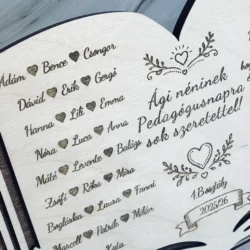 Ádám Bence Csongor
Dávid Erik Gergő
Hanna Lili Emma
Nóra Luca Anna
Máté Levente Balázs
Zsófi Réka Míra
Boglárka Laura Fanni
Marcell Patrik Milán
Kata
Ági néninek
Pedagógusnapra
sok szeretettel!
1.Bosztály
2025/26